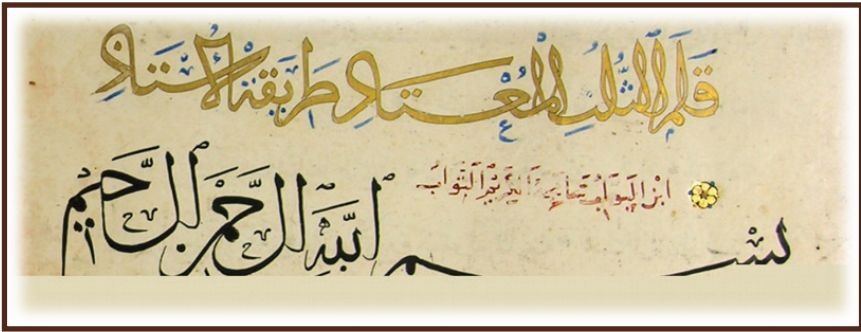 قلم الثلث المعتاد طريقة الاستاد
ابن البواب الكريم التواب
بسم الله الرحمن الرحيم